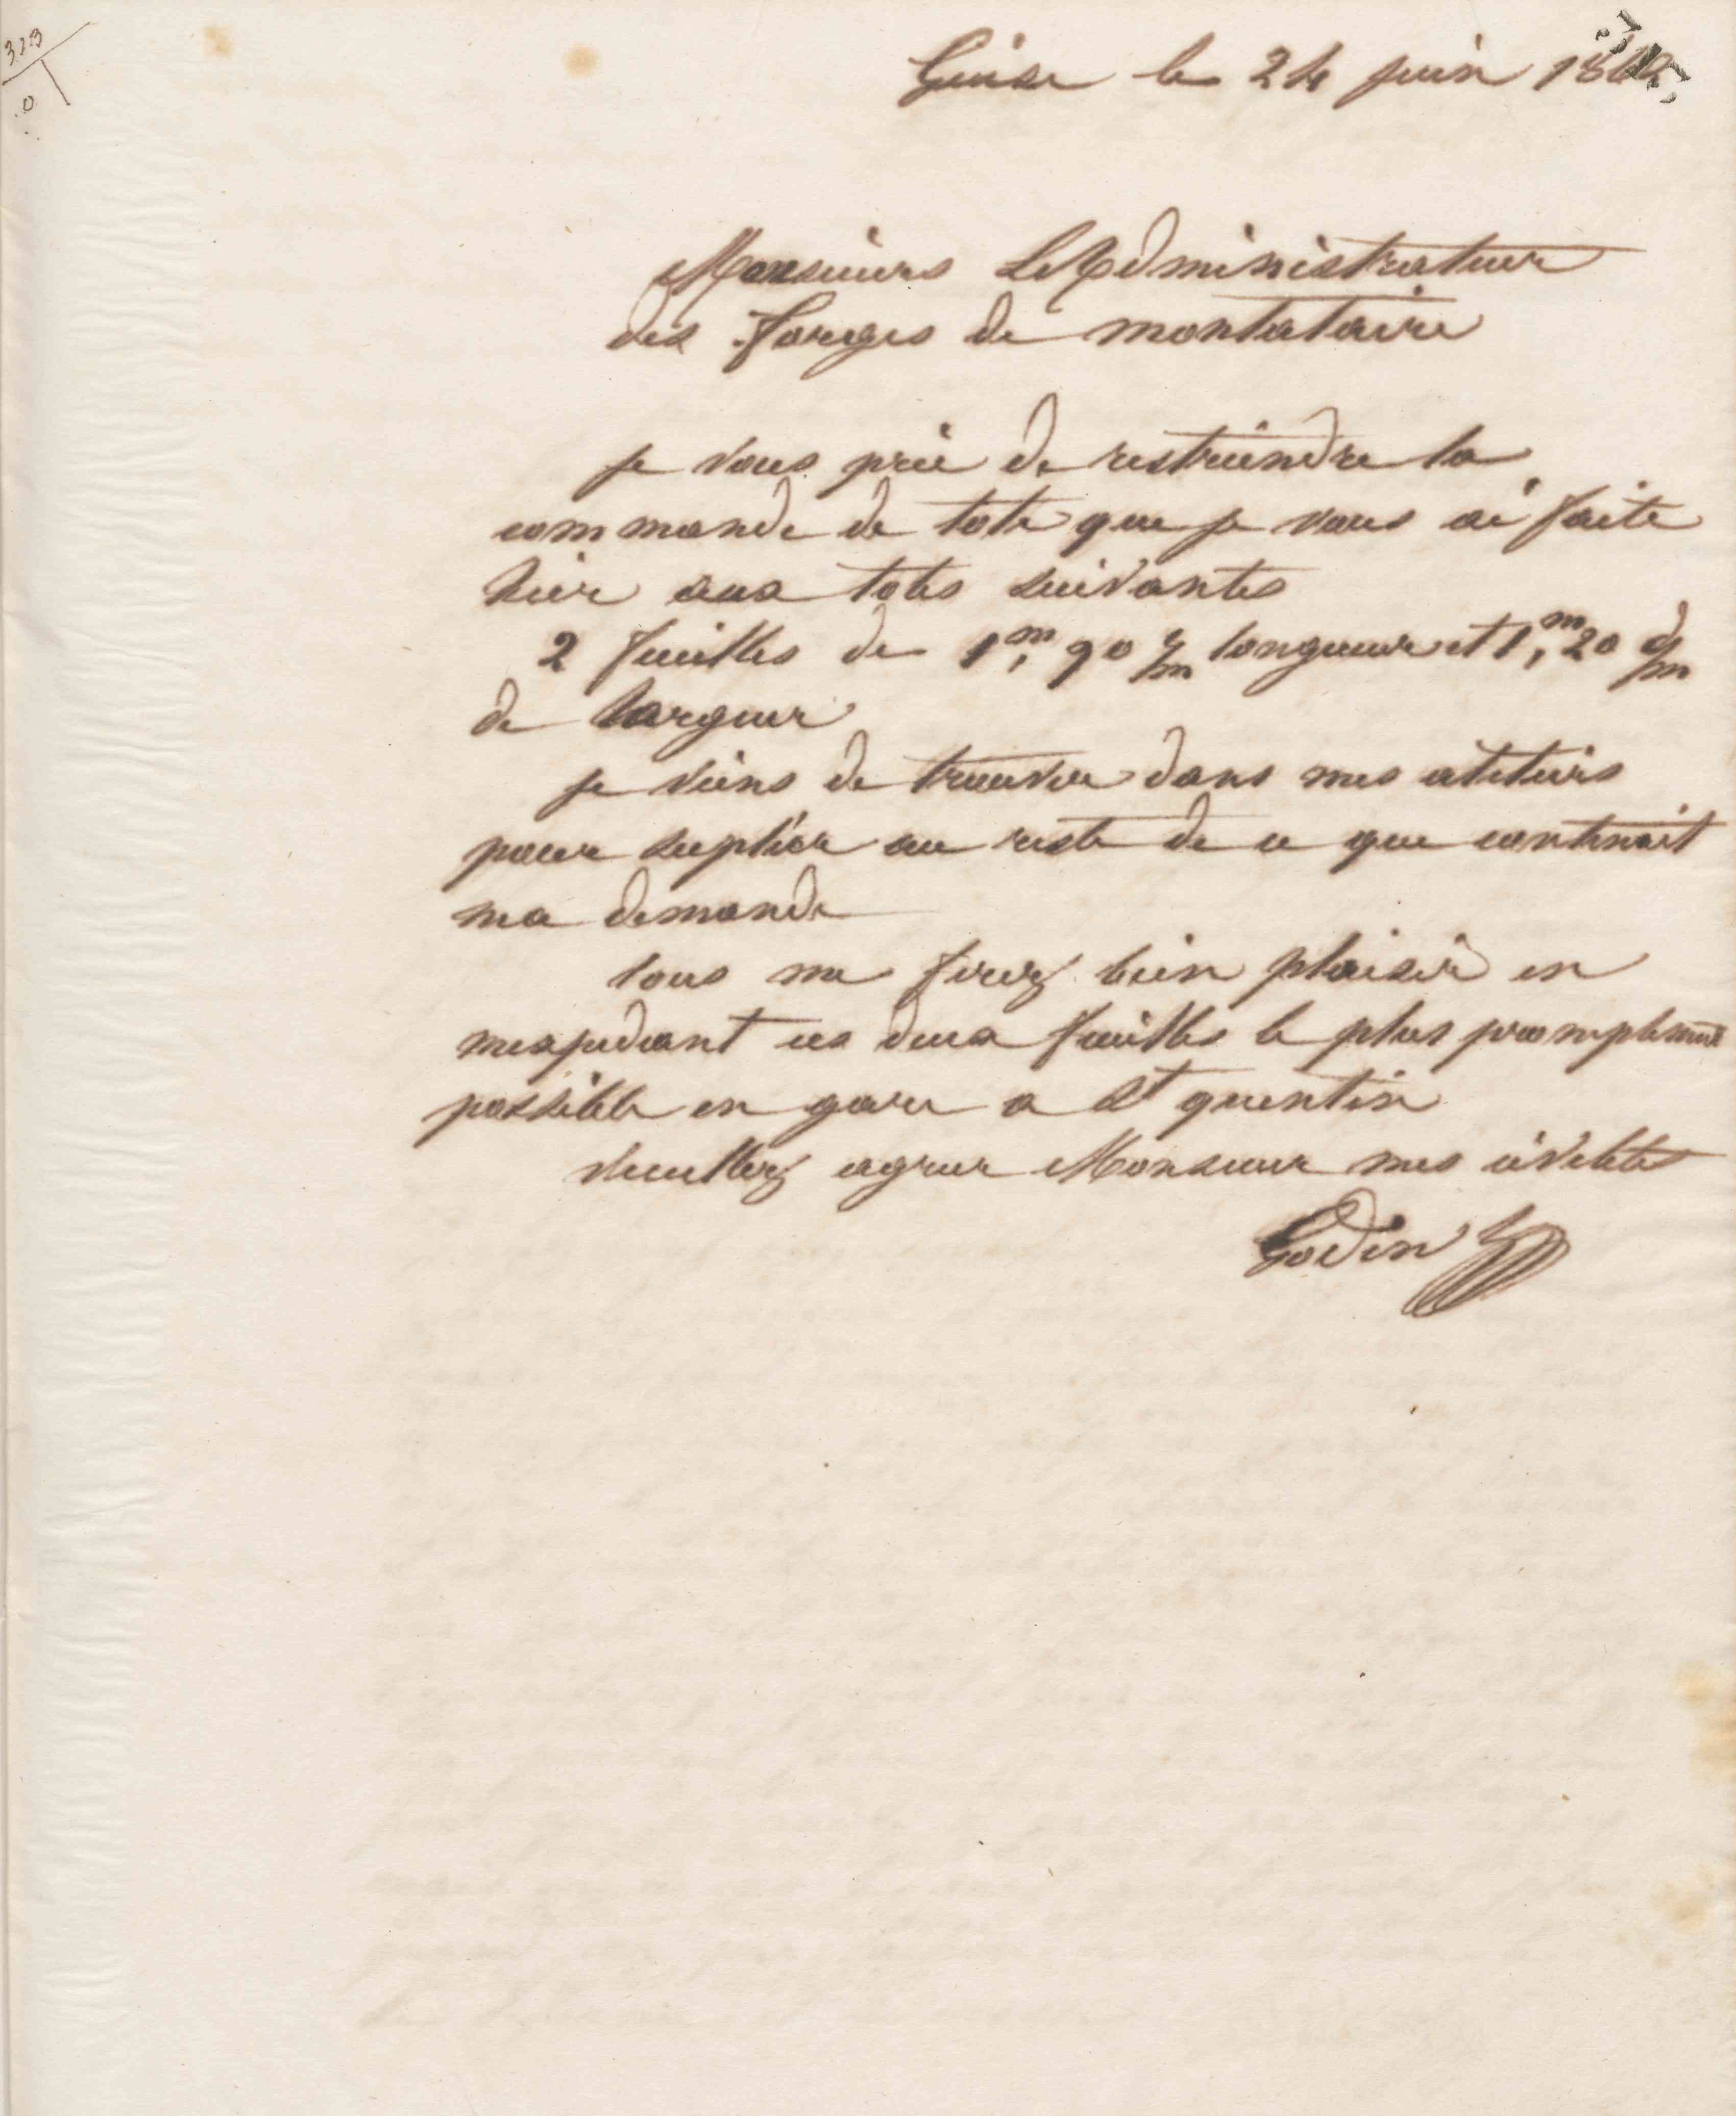 Guise le 24 juin 186
Monsieurs L'Administrateur
des forges de montataire
je vous prie de restreindre la
commande de tole que je vous ai faite
hier aux toles suivantes
2 feuilles de 1m, 90 c/m longueur et 1m, 20 c/m
de largeur
je viens de trouver dans mes ateliers
pour supléer au reste de ce que contenait
ma demande
vous me ferez bien plaisir en
mexpediant ces deux feuilles le plus promptement
possible en gare a St quentin
veuillez agreer Monsieur mes civilités
Godin